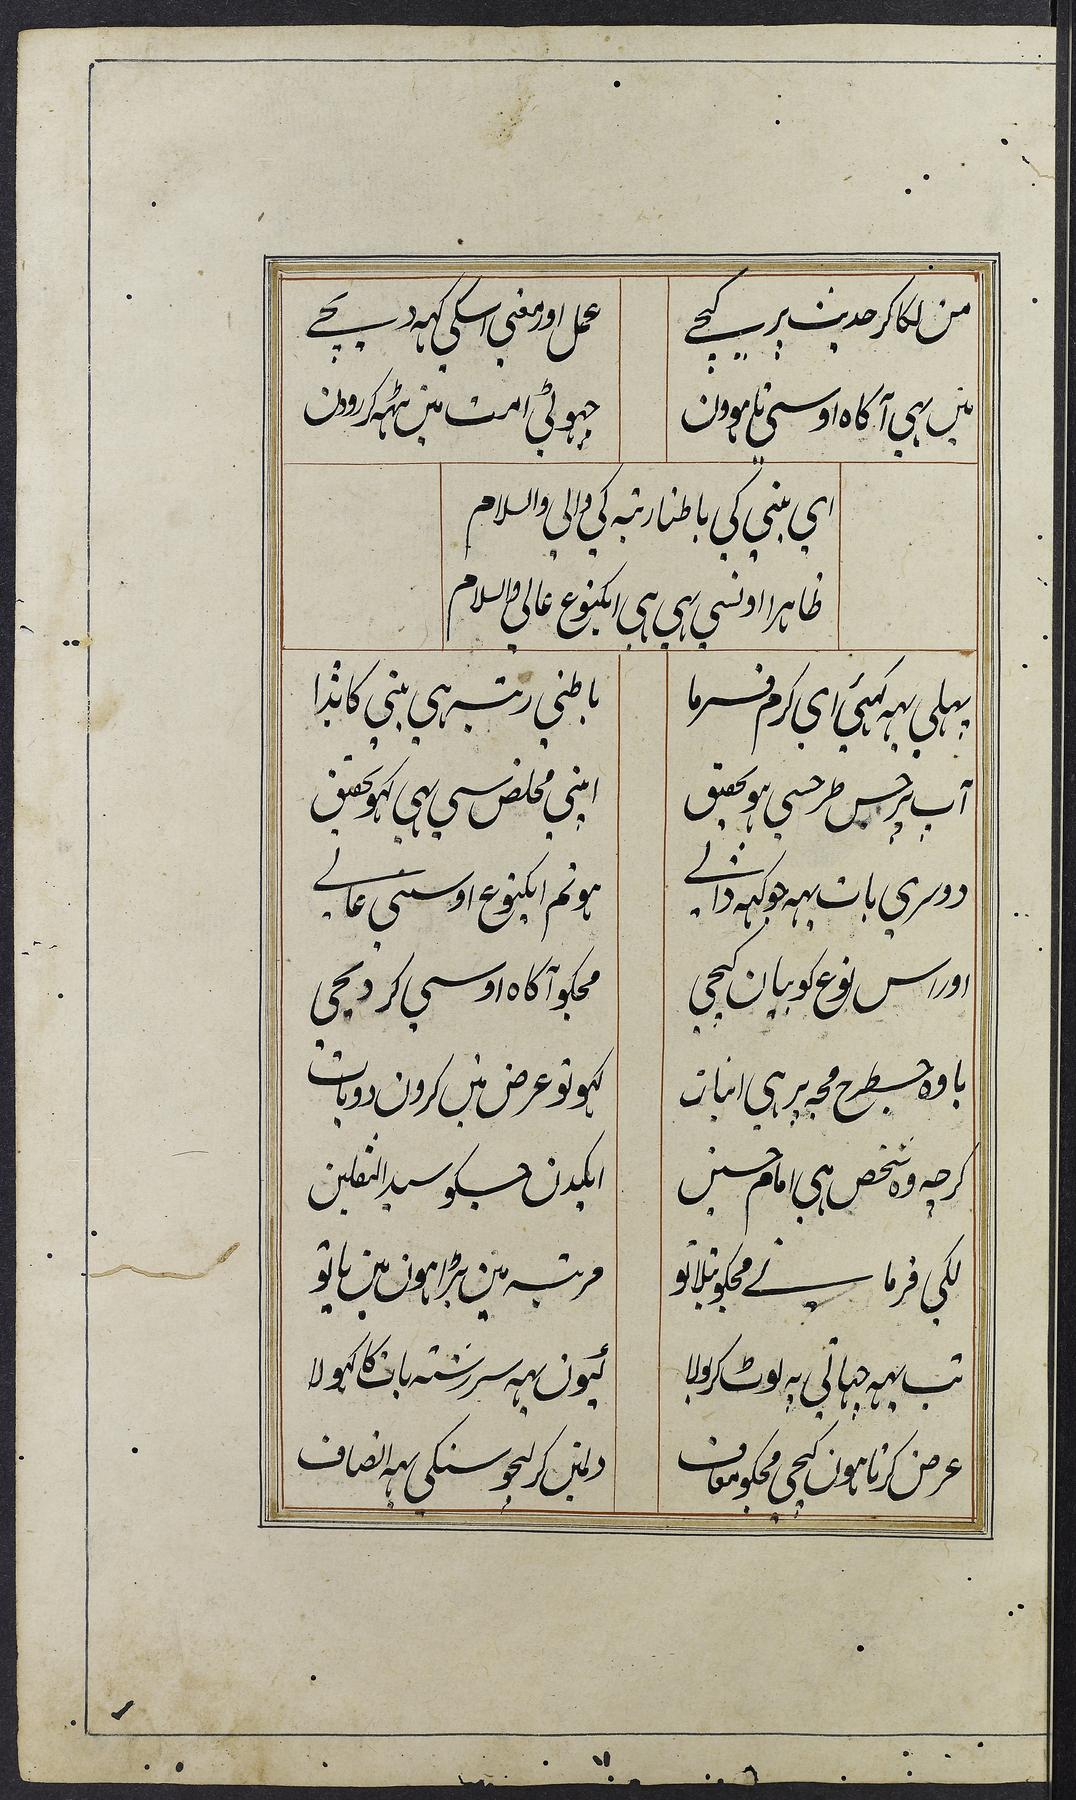 من لکا کر حدیث پر کیجے
عمل اور معنی اسکی کہہ دیجے
میں بہی آکاہ اوسی تا ہوون
جہوٹی امت میں بیٹہہ کر روون
ای بنی کی باطنا رتبہ کی والی والسلام
ظاہرا اونسی بہی ہی ایکنوع عالی والسلام
پہلی یہہ کہئی ای کرم فرما
باطنی رتبہ ہی بنی کا بڈا
آپ پر جس طرحسی ہو تحقیق
اپنی مخلص سی بہی کہو تحقیق
دوسری بات یہہ جو کہہ ڈالے
ہو تم ایکنوع اوسنی عالے
اور اس نوع کو بیان کیجی
مجکو آکاہ اوسی کر دیجی
یا وہ جسطرح مجہ پر ہی اثبات
کہو تو عرض میں کرون دو بات
کرچہ وہ شخص ہی امام حسین
ایکدن جسکو سید الثقلین
لکی فرمانے مجکو بتلا تو
مرتبہ مین بڑا ہون مین یا تو
تب یہہ چہاتی پہ لوٹ کر بولا
کیون یہہ سررشتہ بات کا کہولا
عرض کرتا ہون کیجی مجکو معاف
دلمین کر لیجو سنکی یہہ انصاف